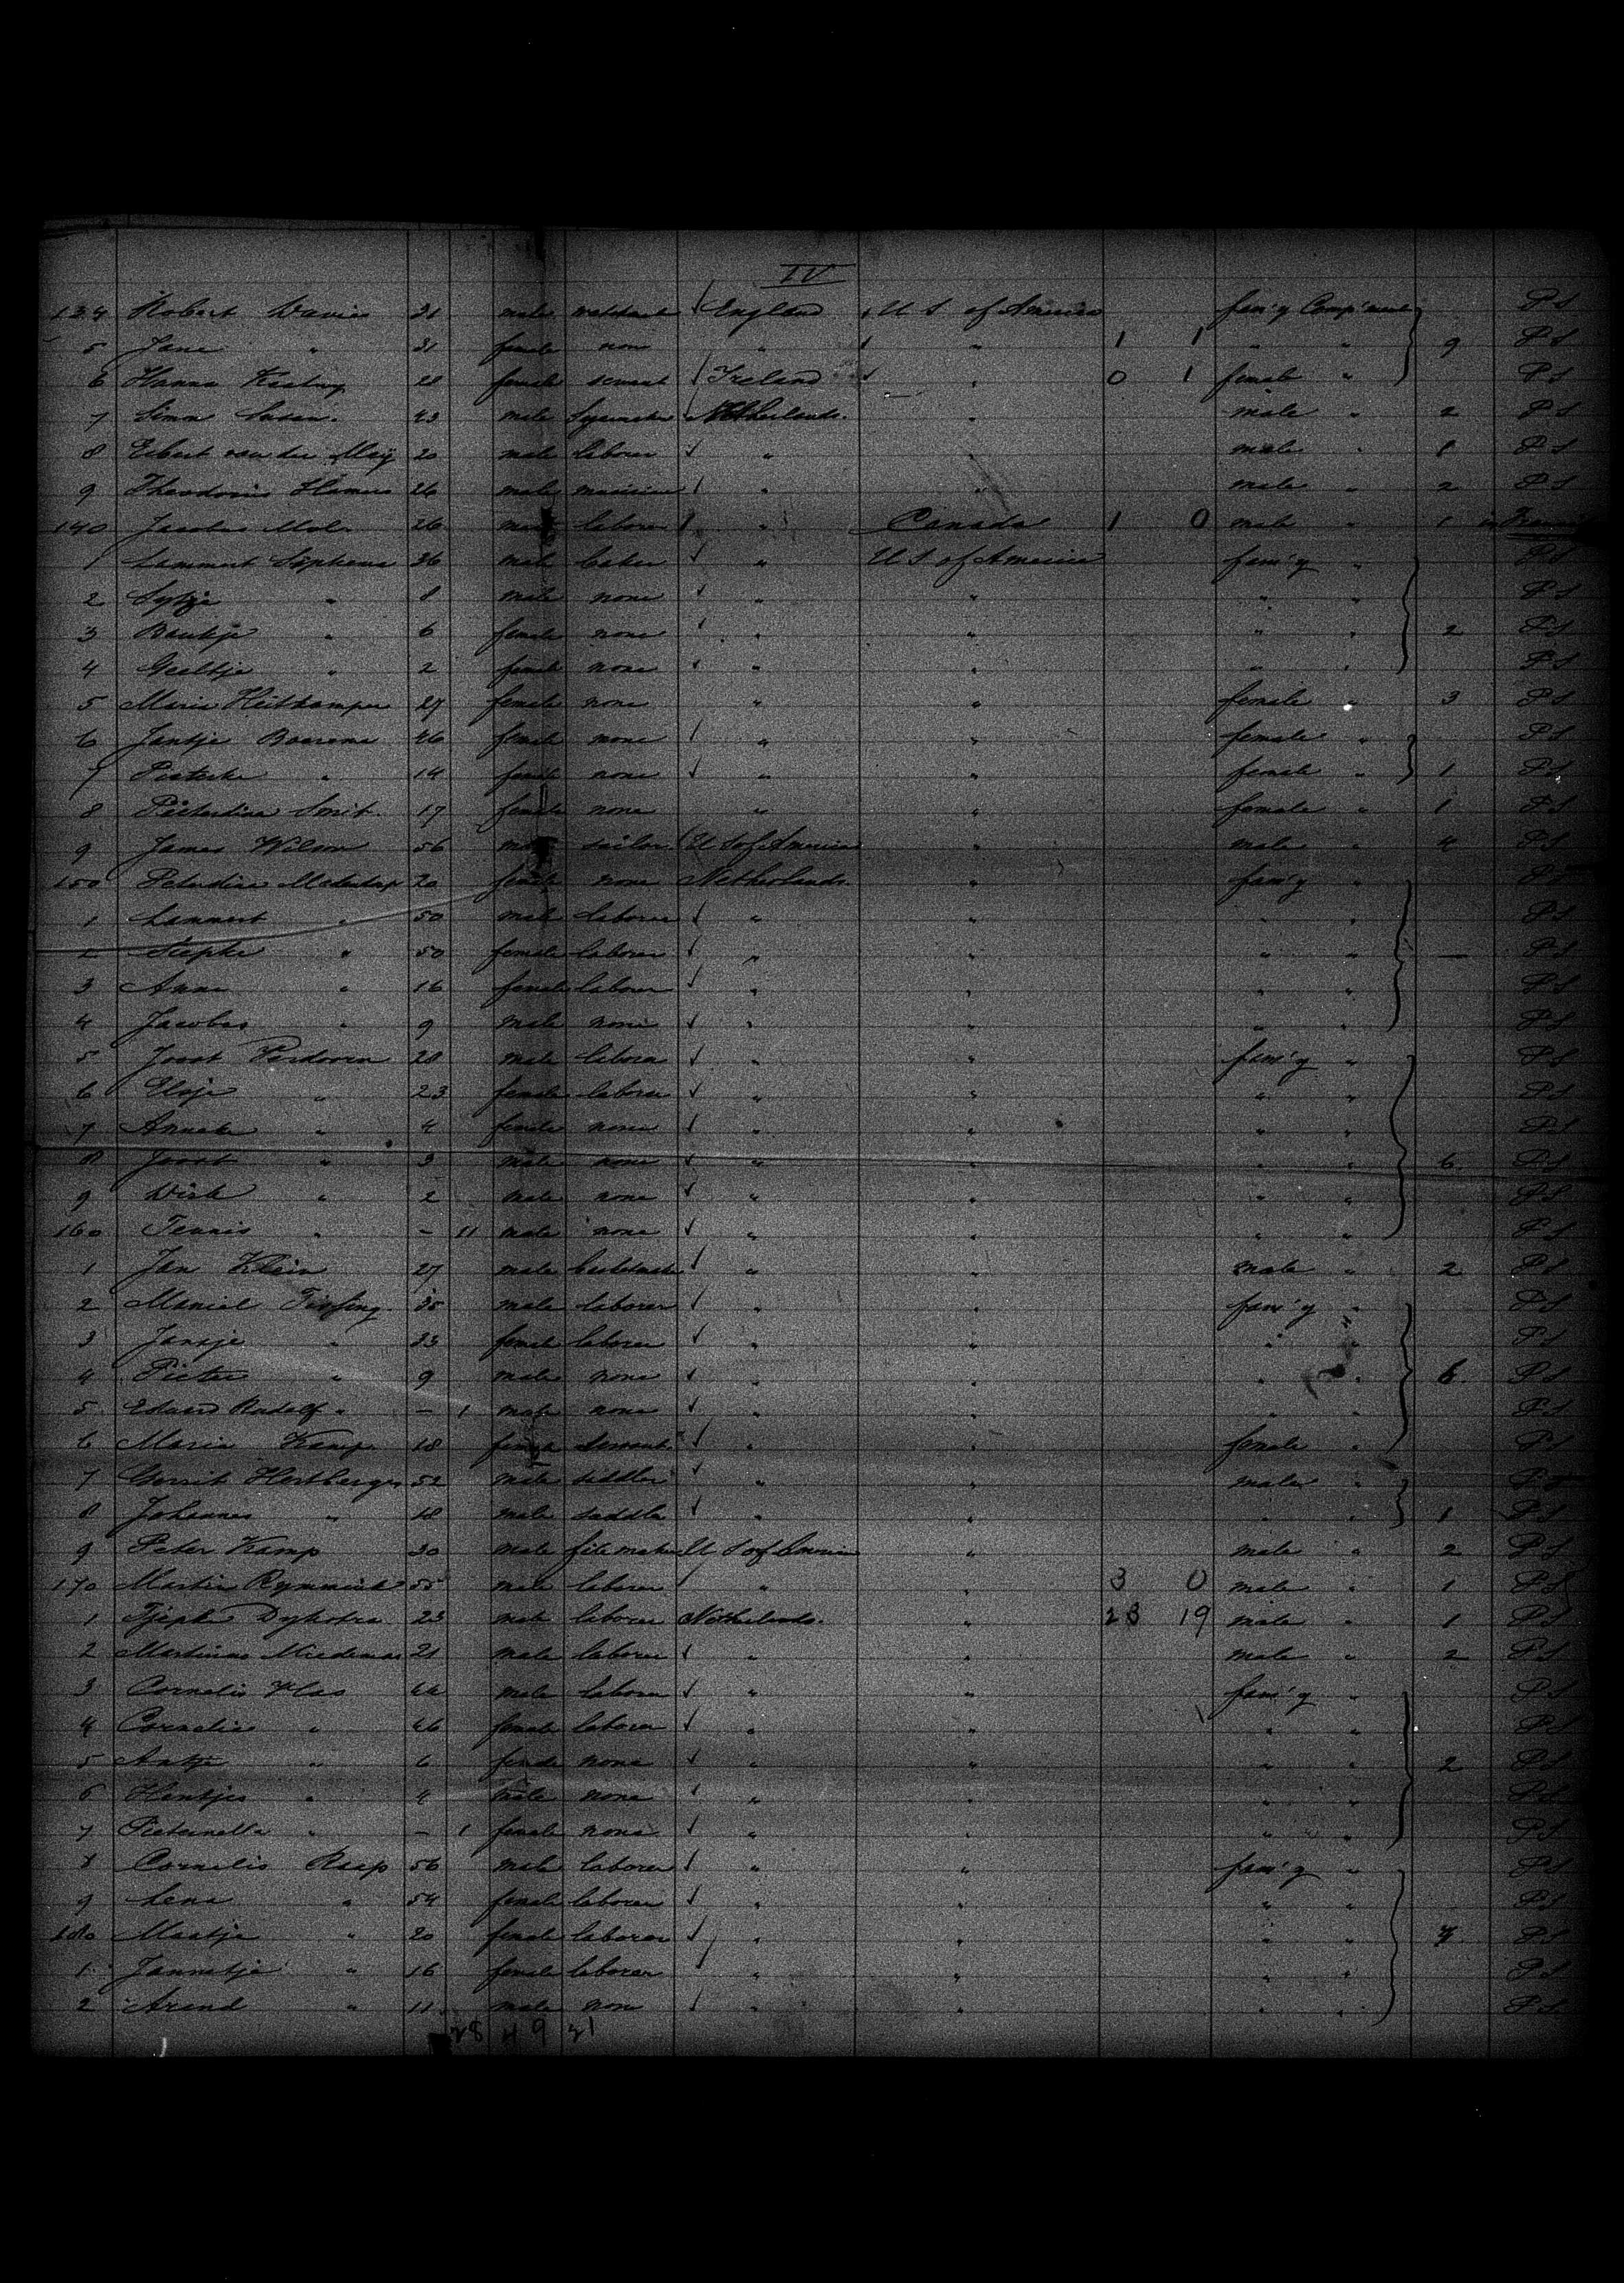 IV
134 Robert Davies 31 male merchant England U S of America fam'y Comp'ment P S
5 Jane " 31 female non " " 1 1 " " 9 P S
6 Hanna 28 female servant Ireland " 0 1 female " P S
7 Simon 43 male Netherlands. " male " 2 P S
8 Eibert van der Meij 20 male laborer " male " 1 P S
9 Theodorus Hamers 26 male musician " " male " 2 P S
140 Jacobus Mol 26 male laborer " Canada 1 0 male " 1 in Transit
1 Lammert Siepkema 36 male baker " U S of America fam'y " P S
2 8 male none " " " " P S
3 Baukje " 6 female none " " " " 2 P S
4 Geeltje " 2 female none " " " " P S
5 Maria Heitkamper 27 female none " " female " 3 P S
6 Jantje Boersma 46 female none " " female " P S
7 " 14 female none " " female " 1 P S
8 Pieterdina Smit. 17 female none " " female " 1 P S
9 James Wilson 56 male sailor U S of America " male " 4 P S
150 20 female none Netherlands. " fam'y " P S
1 Lammert " 50 male laborer " " " " P S
2 Siepke " 50 female laborer " " " " — P S
3 Anna " 16 female laborer " " " " P S
4 Jacobus " 9 male none " " " " P S
5 Joost Verdooren 28 male laborer " " fam'y " P S
6 Elsje " 23 female laborer " " " " P S
7 Anneke " 4 female none " " " " P S
8 Joost " 3 male none " " " " 6. P S
9 Dirk " 2 male none " " " " P S
160 Teunis " – 11 male none " " " " P S
1 Jan Klein 27 male " " male " 2 P S
2 35 male laborer " " fam'y " P S
3 Jansje " 33 female laborer " " " " P S
4 Pieter " 9 male none " " " " 6. P S
5 Eduard Rudolf " – 1 male none " " " " P S
6 Maria Kamp 18 female servant " " female " P S
7 Gerrit Hertberger 52 male saddler " " male " P S
8 Johannes " 18 male saddler " " " " 1 P S
9 Peter Kamp 30 male file maker U S of America " male " 2 P S
170 Martin 55 male laborer " " 3 0 male " 1 P S
1 Tjepke Dykstra 23 male laborer Netherlands. " 23 19 male " 1 P S
2 Martinus Miedema 21 male laborer " " male " 2 P S
3 Cornelis Vlas 44 male laborer " " fam'y " P S
4 Cornelia " 46 female laborer " " " " P S
5 Aatje " 6 female none " " " " 2 P S
6 " 4 male none " " " " P S
7 Pieternella " – 1 female none " " " " P S
8 Cornelis Raap 56 male laborer " " fam'y " P S
9 Lena " 54 female laborer " " " " P S
180 Maatje " 20 female laborer " " " " 7. P S
1 Jannetje " 16 female laborer " " " " P S
2 Arend " 11 male non " " " " P S
28 49 21